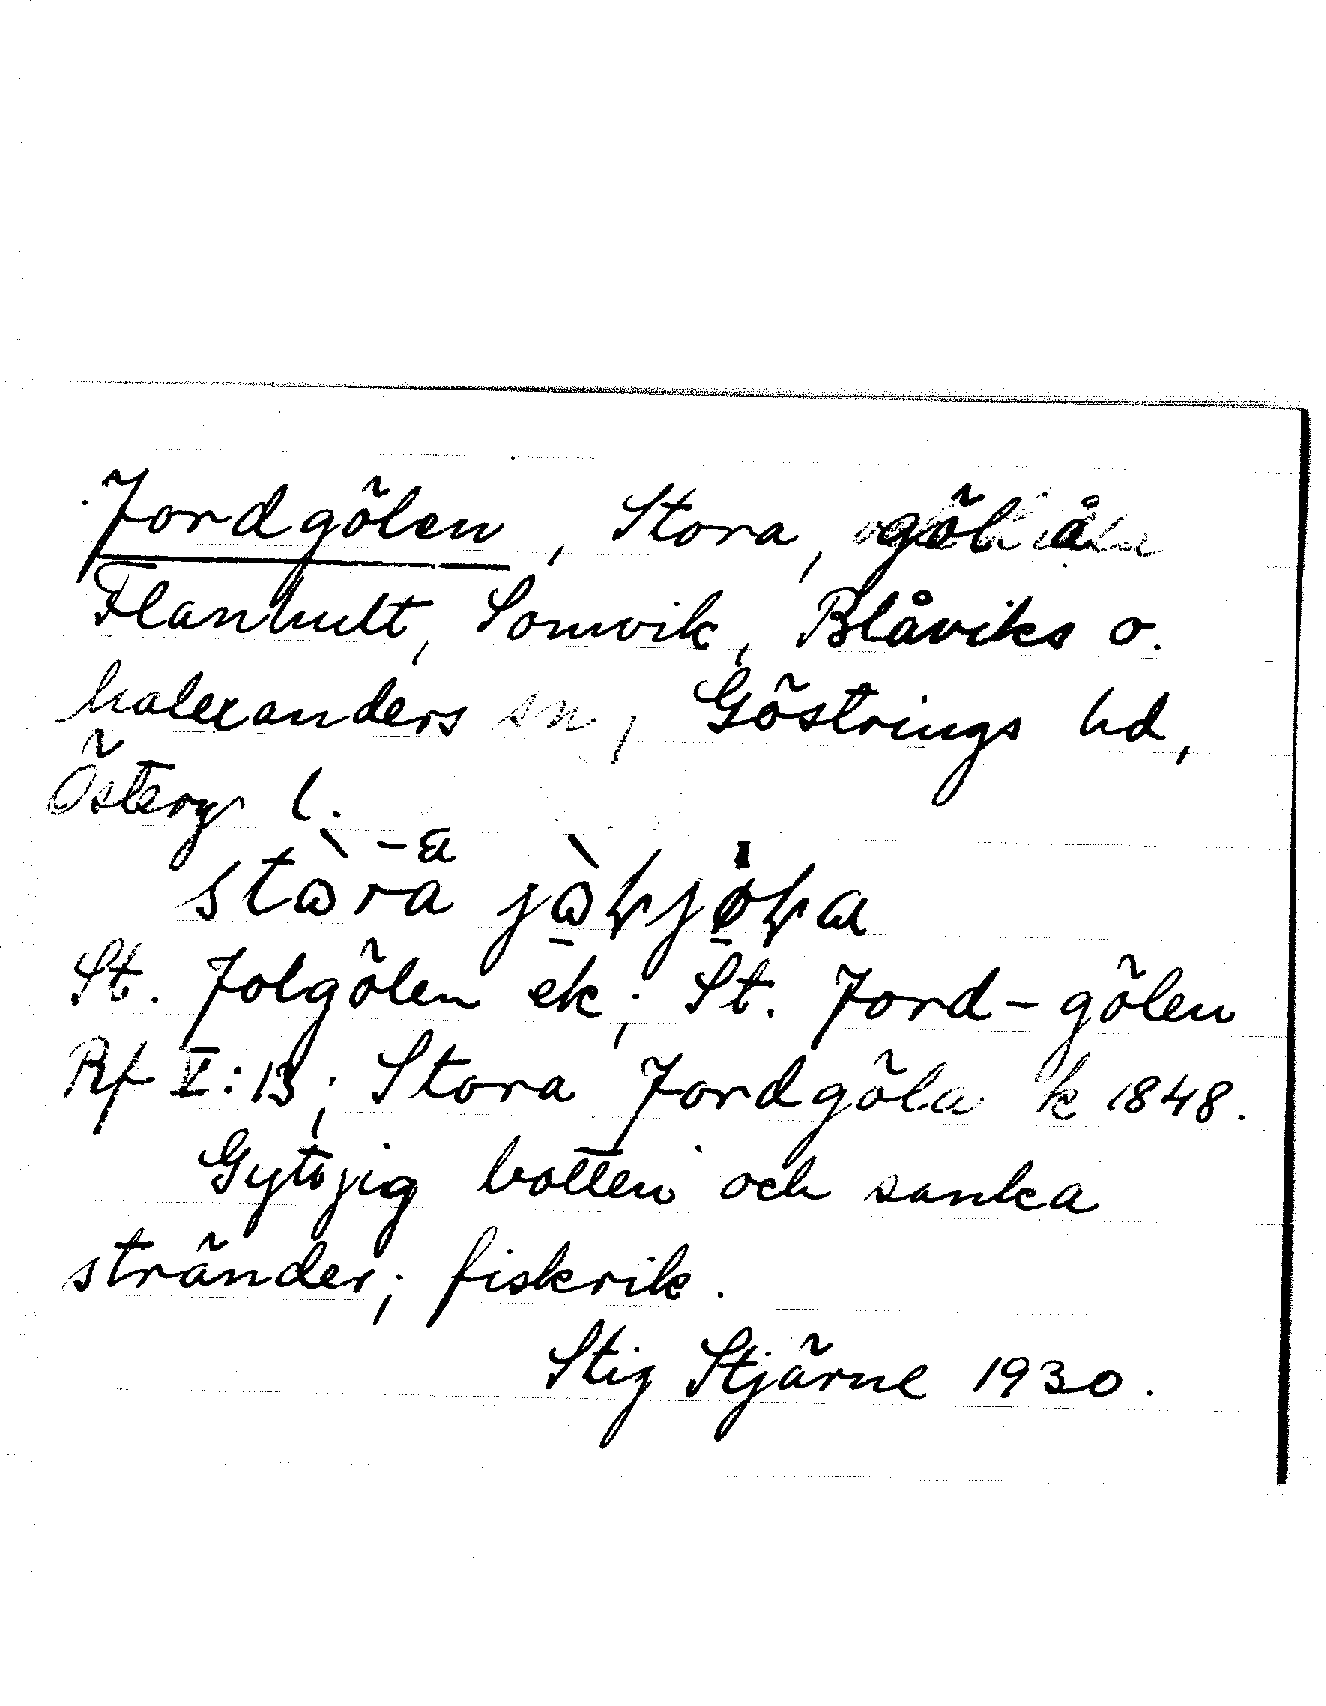 Jordgölen, Stora, göl å
Flanhult, Somvik, Blåviks o.
Malexanders sn, Göstrings hd,
Österg l.
St. Jolgölen ek; St. Jord-gölen
Rf V:13; Stora Jordgöla k 1848.
Gyttjig botten och sanka
stränder; fiskrik.
Stig Stjärne 1930.